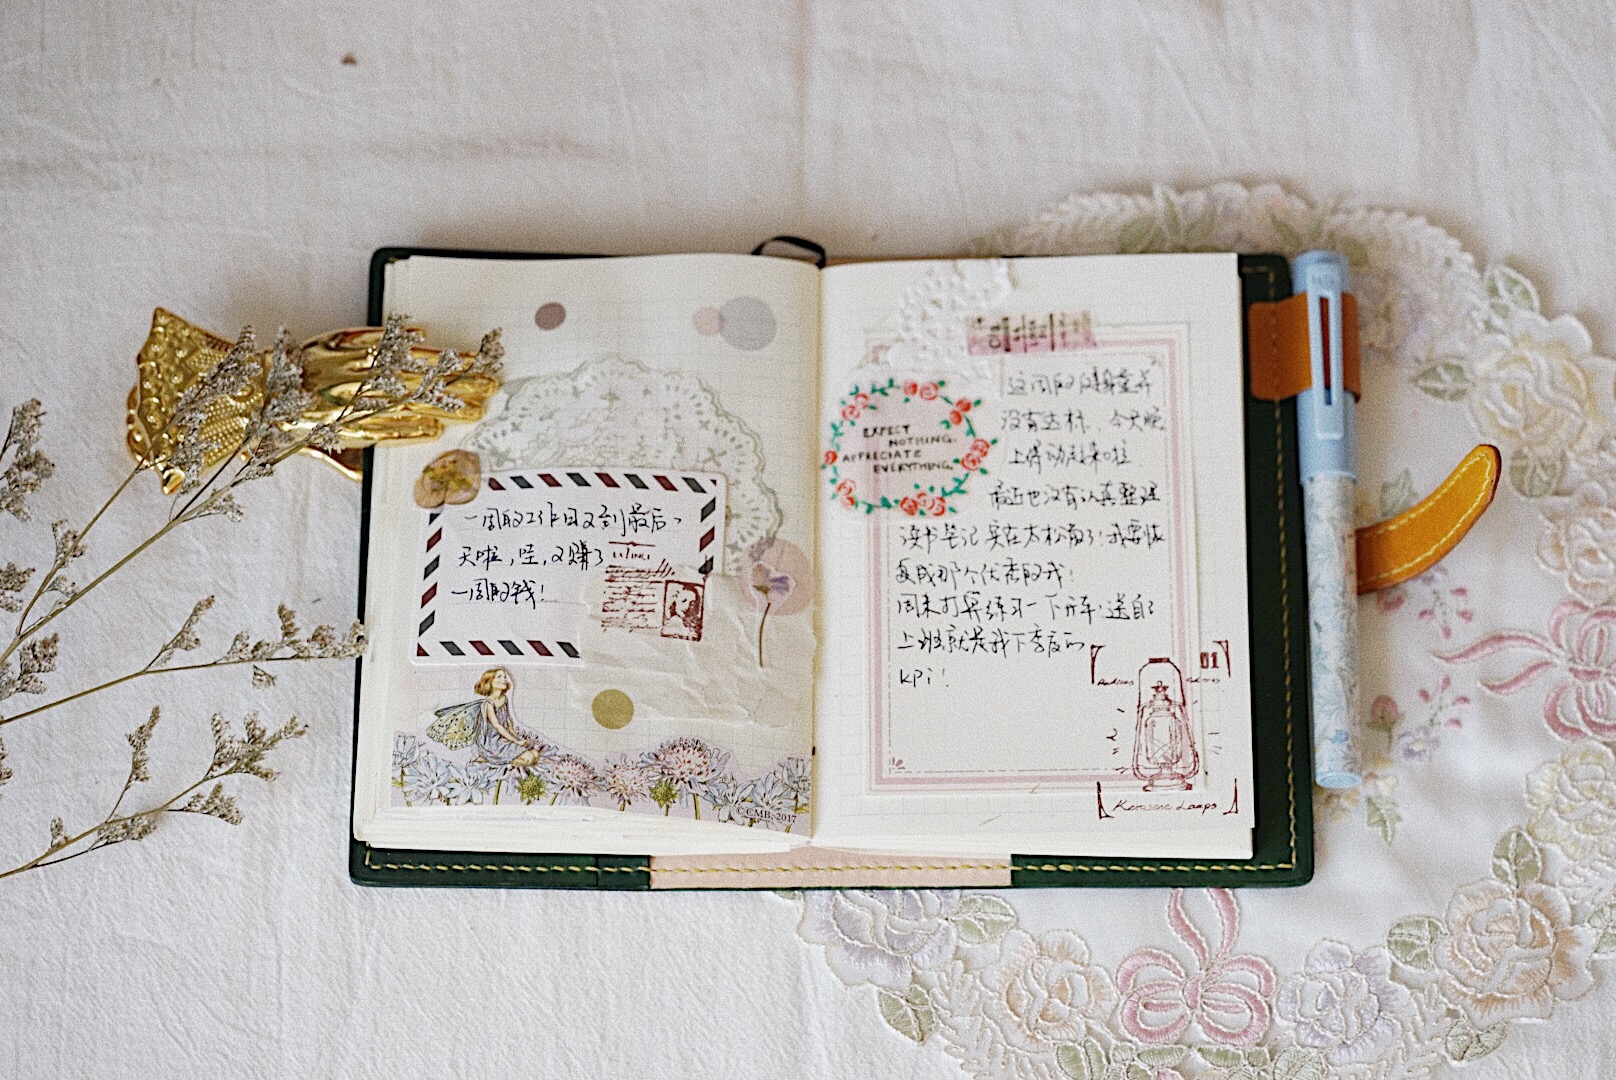 一周的工作日又到最后一
天啦，哇，又赚了
一周的钱！
©CMB. 2017
EXPECT
NOTHING.
APPRECIATE
EVERYTHING.
这周的健身重
没有达标，今天晚
上得动起来啦
最近也没有认真整理
读书笔记 实在太松懈了！我要恢
复成那个优秀的我！
周末打算练习一下开车！送自己
上班就是我下季度的
kpi！
01
Kerosene Lamps